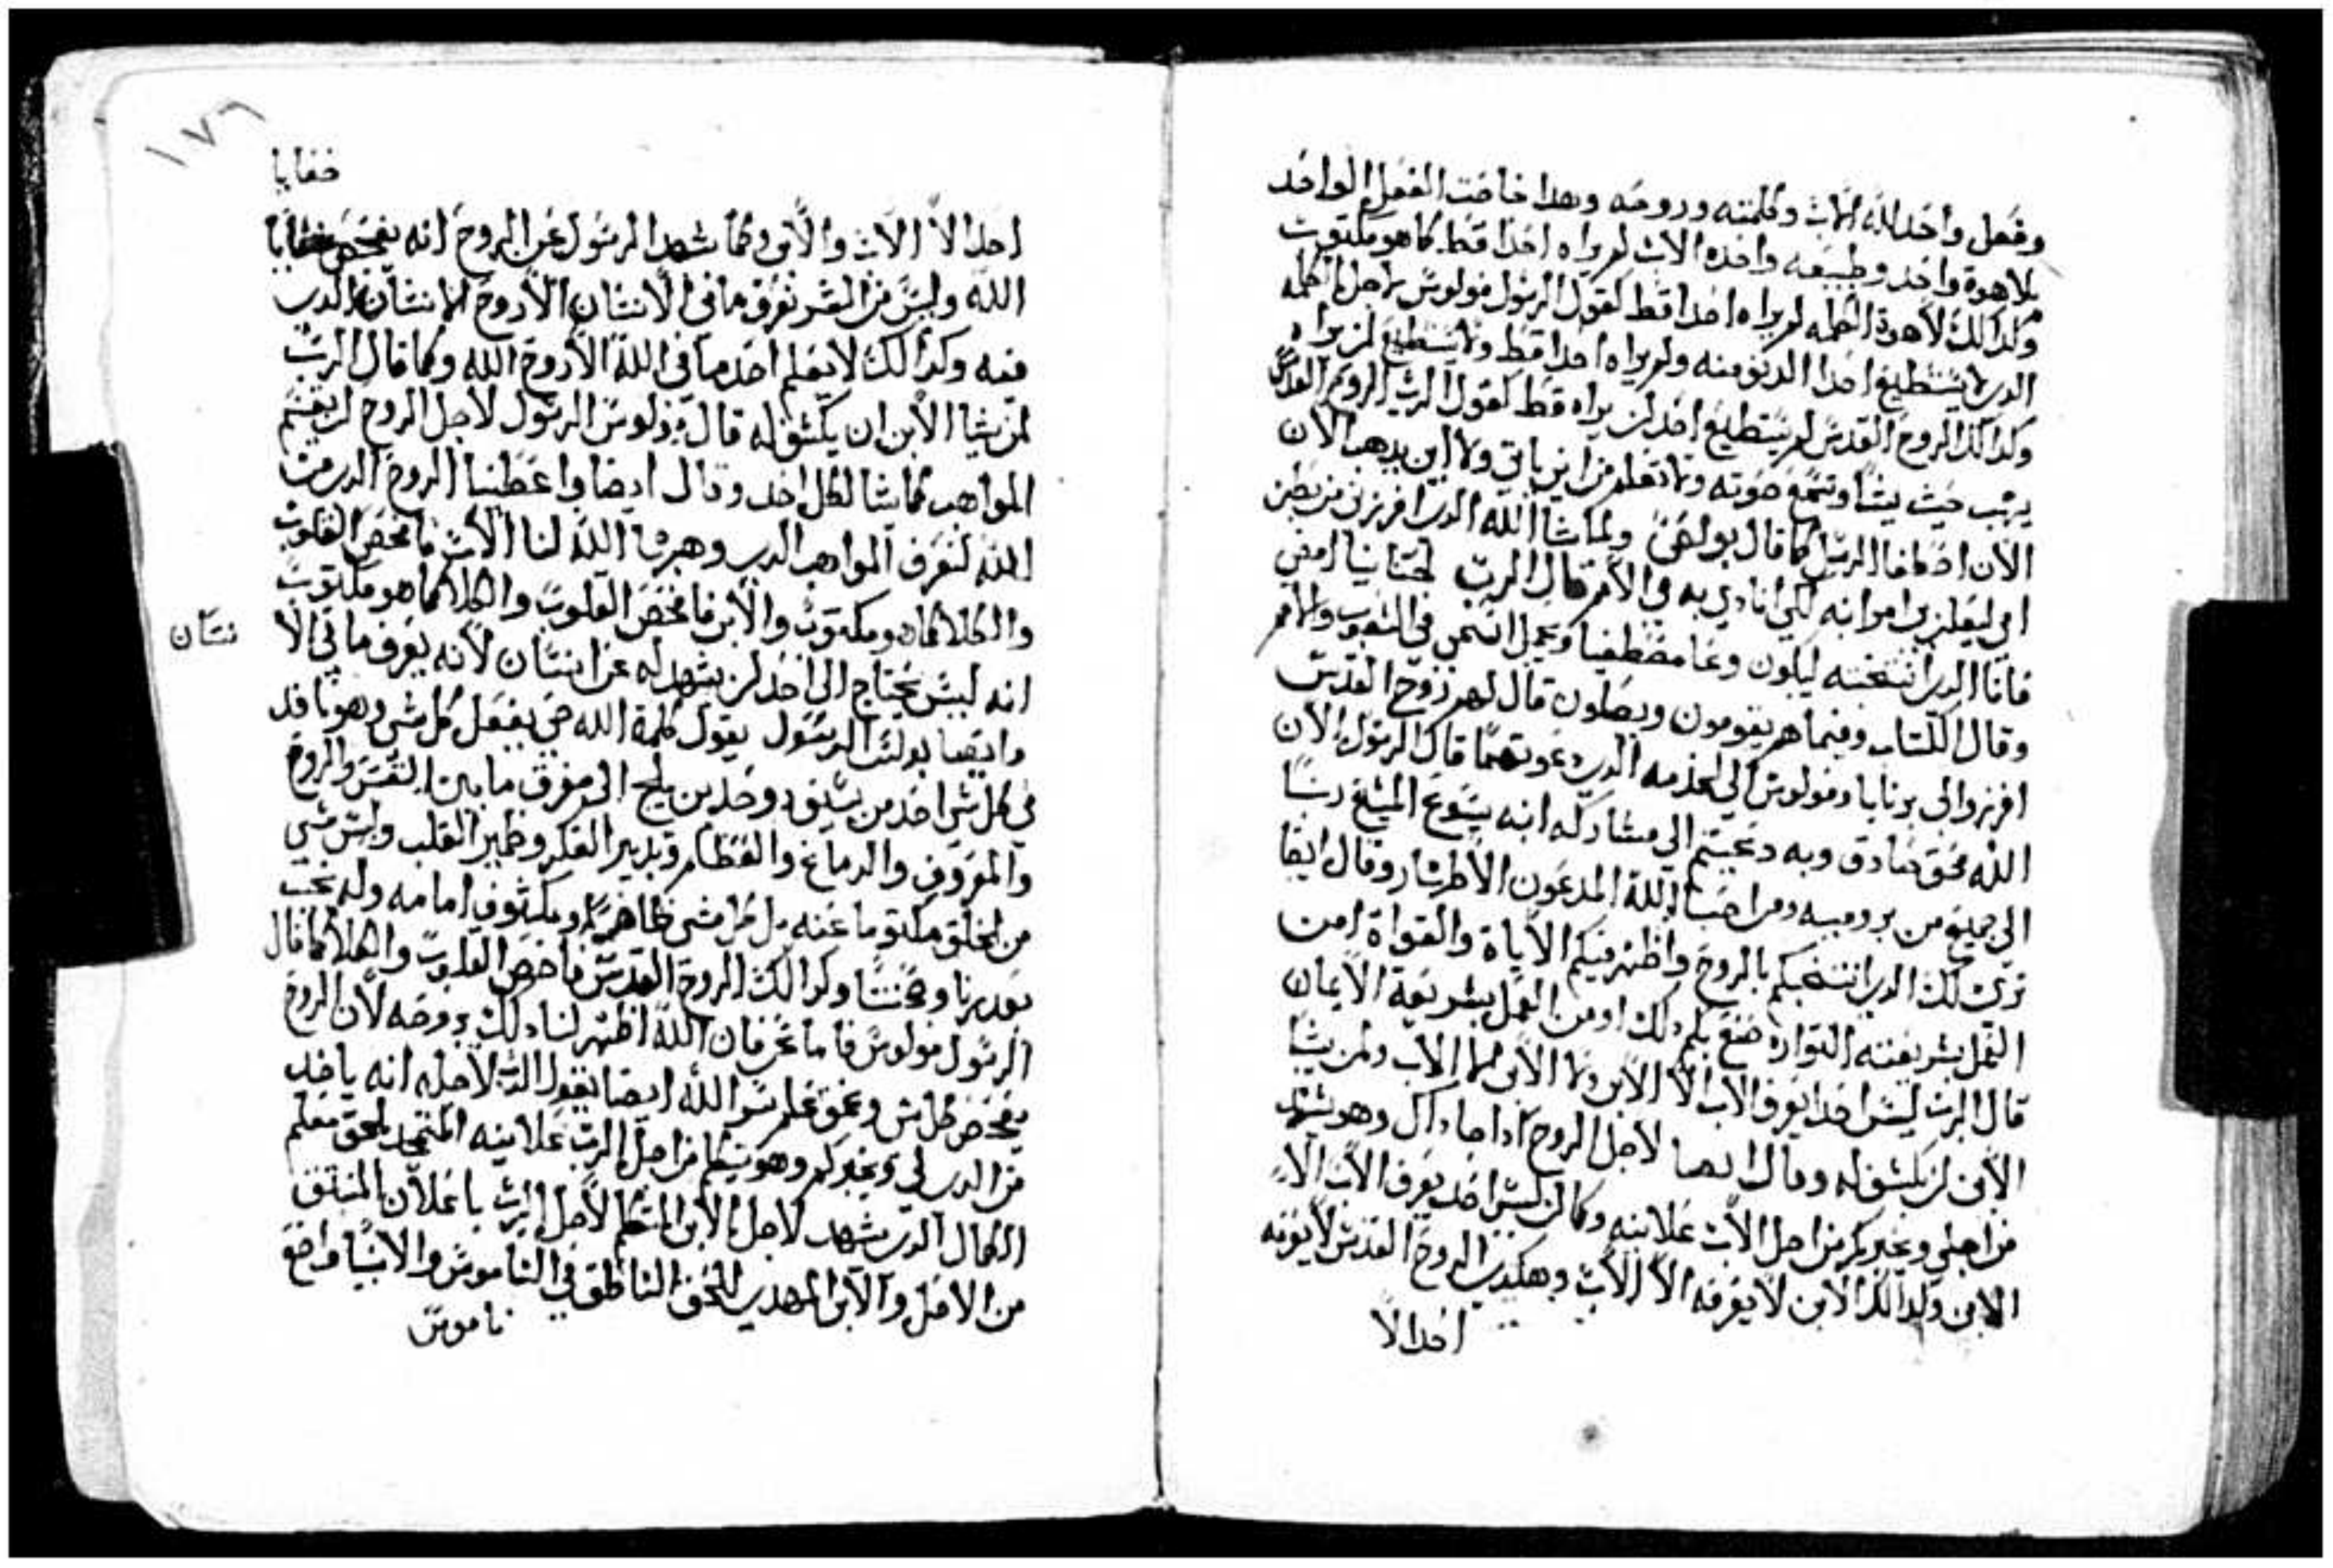 وفعل واحد الله الاب وكلمته وروحه وهدا خاصت الفعل الواحد
بلاهوة واحد وطبيعه واحده الاب لم يراه احدا قط كما هو مكتوب
وكدالك لاهوة الكلمه لم يراه احدا قط لقول الرسول فولوس لاجل الكلمه
الدى لا يستطيع احدا الدنو منه ولم يراه احدا قط ولا يستطيع لن يراه
وكدالك الروح القدس لم يستطيع احد لن يراه قط لقول الرب الروح القدس
يهب حيث يشا وتسمع صوته ولا تعلم من اين ياتي ولا اين يدهب الان
الان اصطفا الرسل كما قال بولص ولما شا الله الدى افرزنى من بطن
امي ليعلن لى امر ابنه لكي انادي به في الامم قال الرب لحنانيا امضى
فانا الدى انتخبته ليكون وعا مصطفيا ويحمل اسمى في الشعوب والامم
وقال الكتاب وفيما هم يقومون ويصلون قال لهم روح القدس
افرزوا لى برنابا وفولوس الى الخدمه الدى دعوتهما قال الرسول الان
الله محق صادق وبه دعيتم الى مشاركه ابنه يسوع المسيح ربنا
الى جميع من برومييه ومن احبا الله المدعون الاطهار وقال ايضا
ترى لك الدى انتخبكم بالروح واظهر فيكم الاياة والقواة امن
العمل بشريعته التوراه صنع بكم دلك او من العمل بشريعة الايمان
قال الرب ليس احدا يعرف الاب الا الابن ولا الابن الا الاب ولمن يشا
الابن لن يكشف له وقال ايضا لاجل الروح ادا جا داك وهو يشهد
من اجلي ويخبركم من اجل الاب علانيه وكما لن ليس احد يعرف الاب الا
الابن وكدالك الابن لا يعرفه الا الاب وهكدى الروح القدس لا يعرفه
احدا الا
١٧٦
خفايا
احدا الا الاب والابن وكما شهد الرسول عن الروح انه يفحص خفايا
الله وليس من البشر تعرف ما في الانسان الا روح الانسان الدى
فيه وكدالك لا يعلم احد ما في الله الا روح الله وكما قال الرب
لمن يشا الابن ان يكشف له قال فولوس الرسول لاجل الروح لن يقسم
المواهب كما يشا لكل احد وقال ايضا واعطينا الروح الدى من
الله لنعرف المواهب الدى وهبها الله لنا الاب فاحص القلوب
والكلا كما هو مكتوب والابن فاحص القلوب والكلا كما هو مكتوب
انه ليس يحتاج الى احد لن يشهد له عن انسان لانه يعرف ما في الا
نسان
وايضا بولس الرسول يقول كلمة الله حى يفعل كل شى وهو نافد
في كل شى احد من سيف دو حدين يلج الى مفرق ما بين النفس والروح
والمعروف والدماغ والعظام وتدبير الفكر وضمير القلب وليس شي
من الخلق مكتوما عنه بل كل شى ظاهرا ومكشوف امامه وله نحب
تعديرنا ومحنتنا وكدالك الروح القدس فاحص القلوب والكلا كما قال
الرسول فولوس فاما نحن فان الله اظهر لنا دلك بروحه لان الروح
يفحص كل شى وعمق علم سر الله ايضا يقول الرب لاجله انه ياخد
من الدى لي ويخبركم وهو يتكلم من اجل الرب علانيه المتجد بلحق معلم
الكمال الدى يشهد لاجل الابن المتكلم لاجل الرب باعلان المنبثق
من الاصل والابن المهدى للحق الناطق في الناموس والانبيا واضع
ناموس